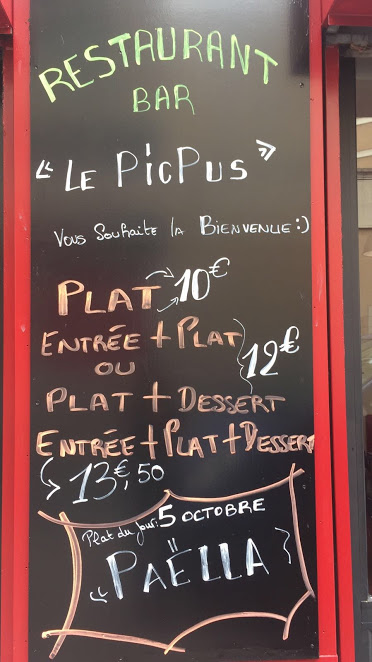 RESTAURANT
BAR
« LE PicPus »
Vous Souhaite lA BIENVENUE :)
PLAT 10€
ENTRÉE + PLAT
OU
12€
PLAT + DESSERT
ENTRÉE + PLAT + DESSERT
13€,50
Plat du jour: 5 OCTOBRE
PAËLLA